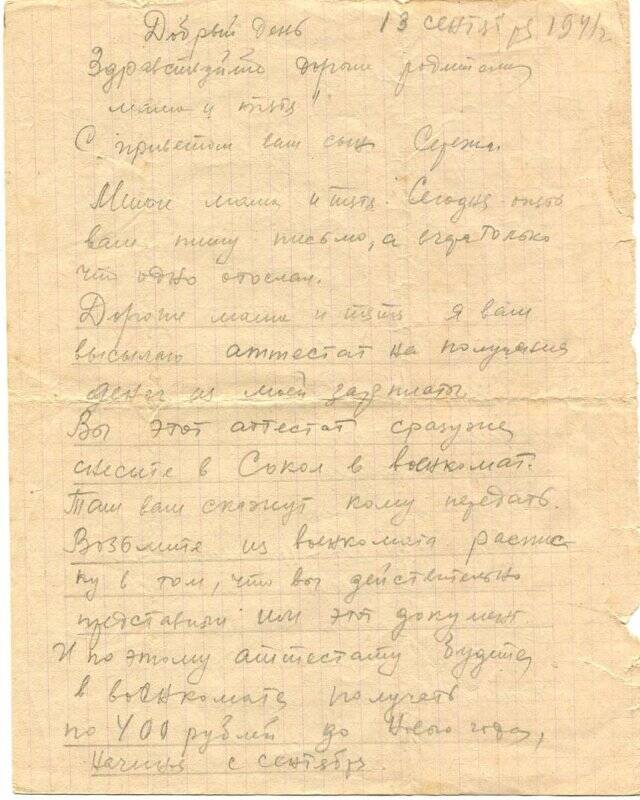 Добрый день 13 сентября 1941г
Здравствуйте дорогие родители
мама и тятя!
С приветом ваш сын Сережа.
Милые мама и тятя. Сегодня опять
вам пишу письмо, а вчера только
что одно отослал.
Дорогие мама и тятя я вам
высылаю аттестат на получения
денег из моей зарплаты.
Вы этот аттестат сразуже
снесите в Сокол в военкомат.
Там вам скажут кому передать.
Возьмите из военкомата распис
ку в том, что вы действительно
представили им этот документ
И по этому аттестату будете
в военкомате получать
по 400 рублей до Нового года,
начиная с сентября.